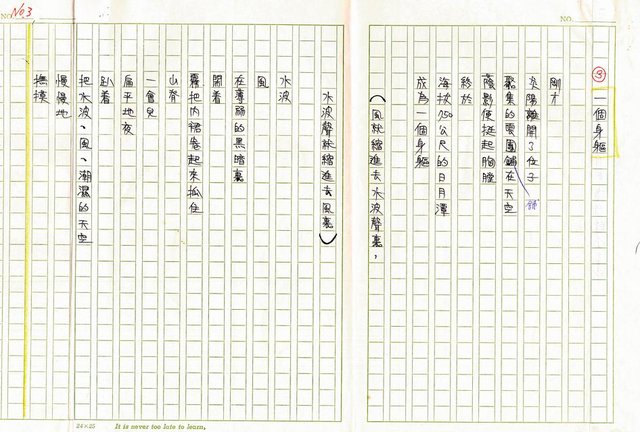 NO.
③
一個身軀
剛才
炎陽離開了位子
聚集的雲團鋪在天空
鋪
陰影使挺起胸膛
終於
海拔750公尺的日月潭
成為一個身軀
（風就縮進去水波聲裏，
水波聲就縮進去風裏）
水波
風
在薄弱的黑暗裏
開着
霧把內裙卷起來抓住
山脊
一會兒
扁平地夜
趴着
把水波、風、潮濕的天空
慢慢地
撫摸
NO. No 3
24×25 It is never too late to learn,